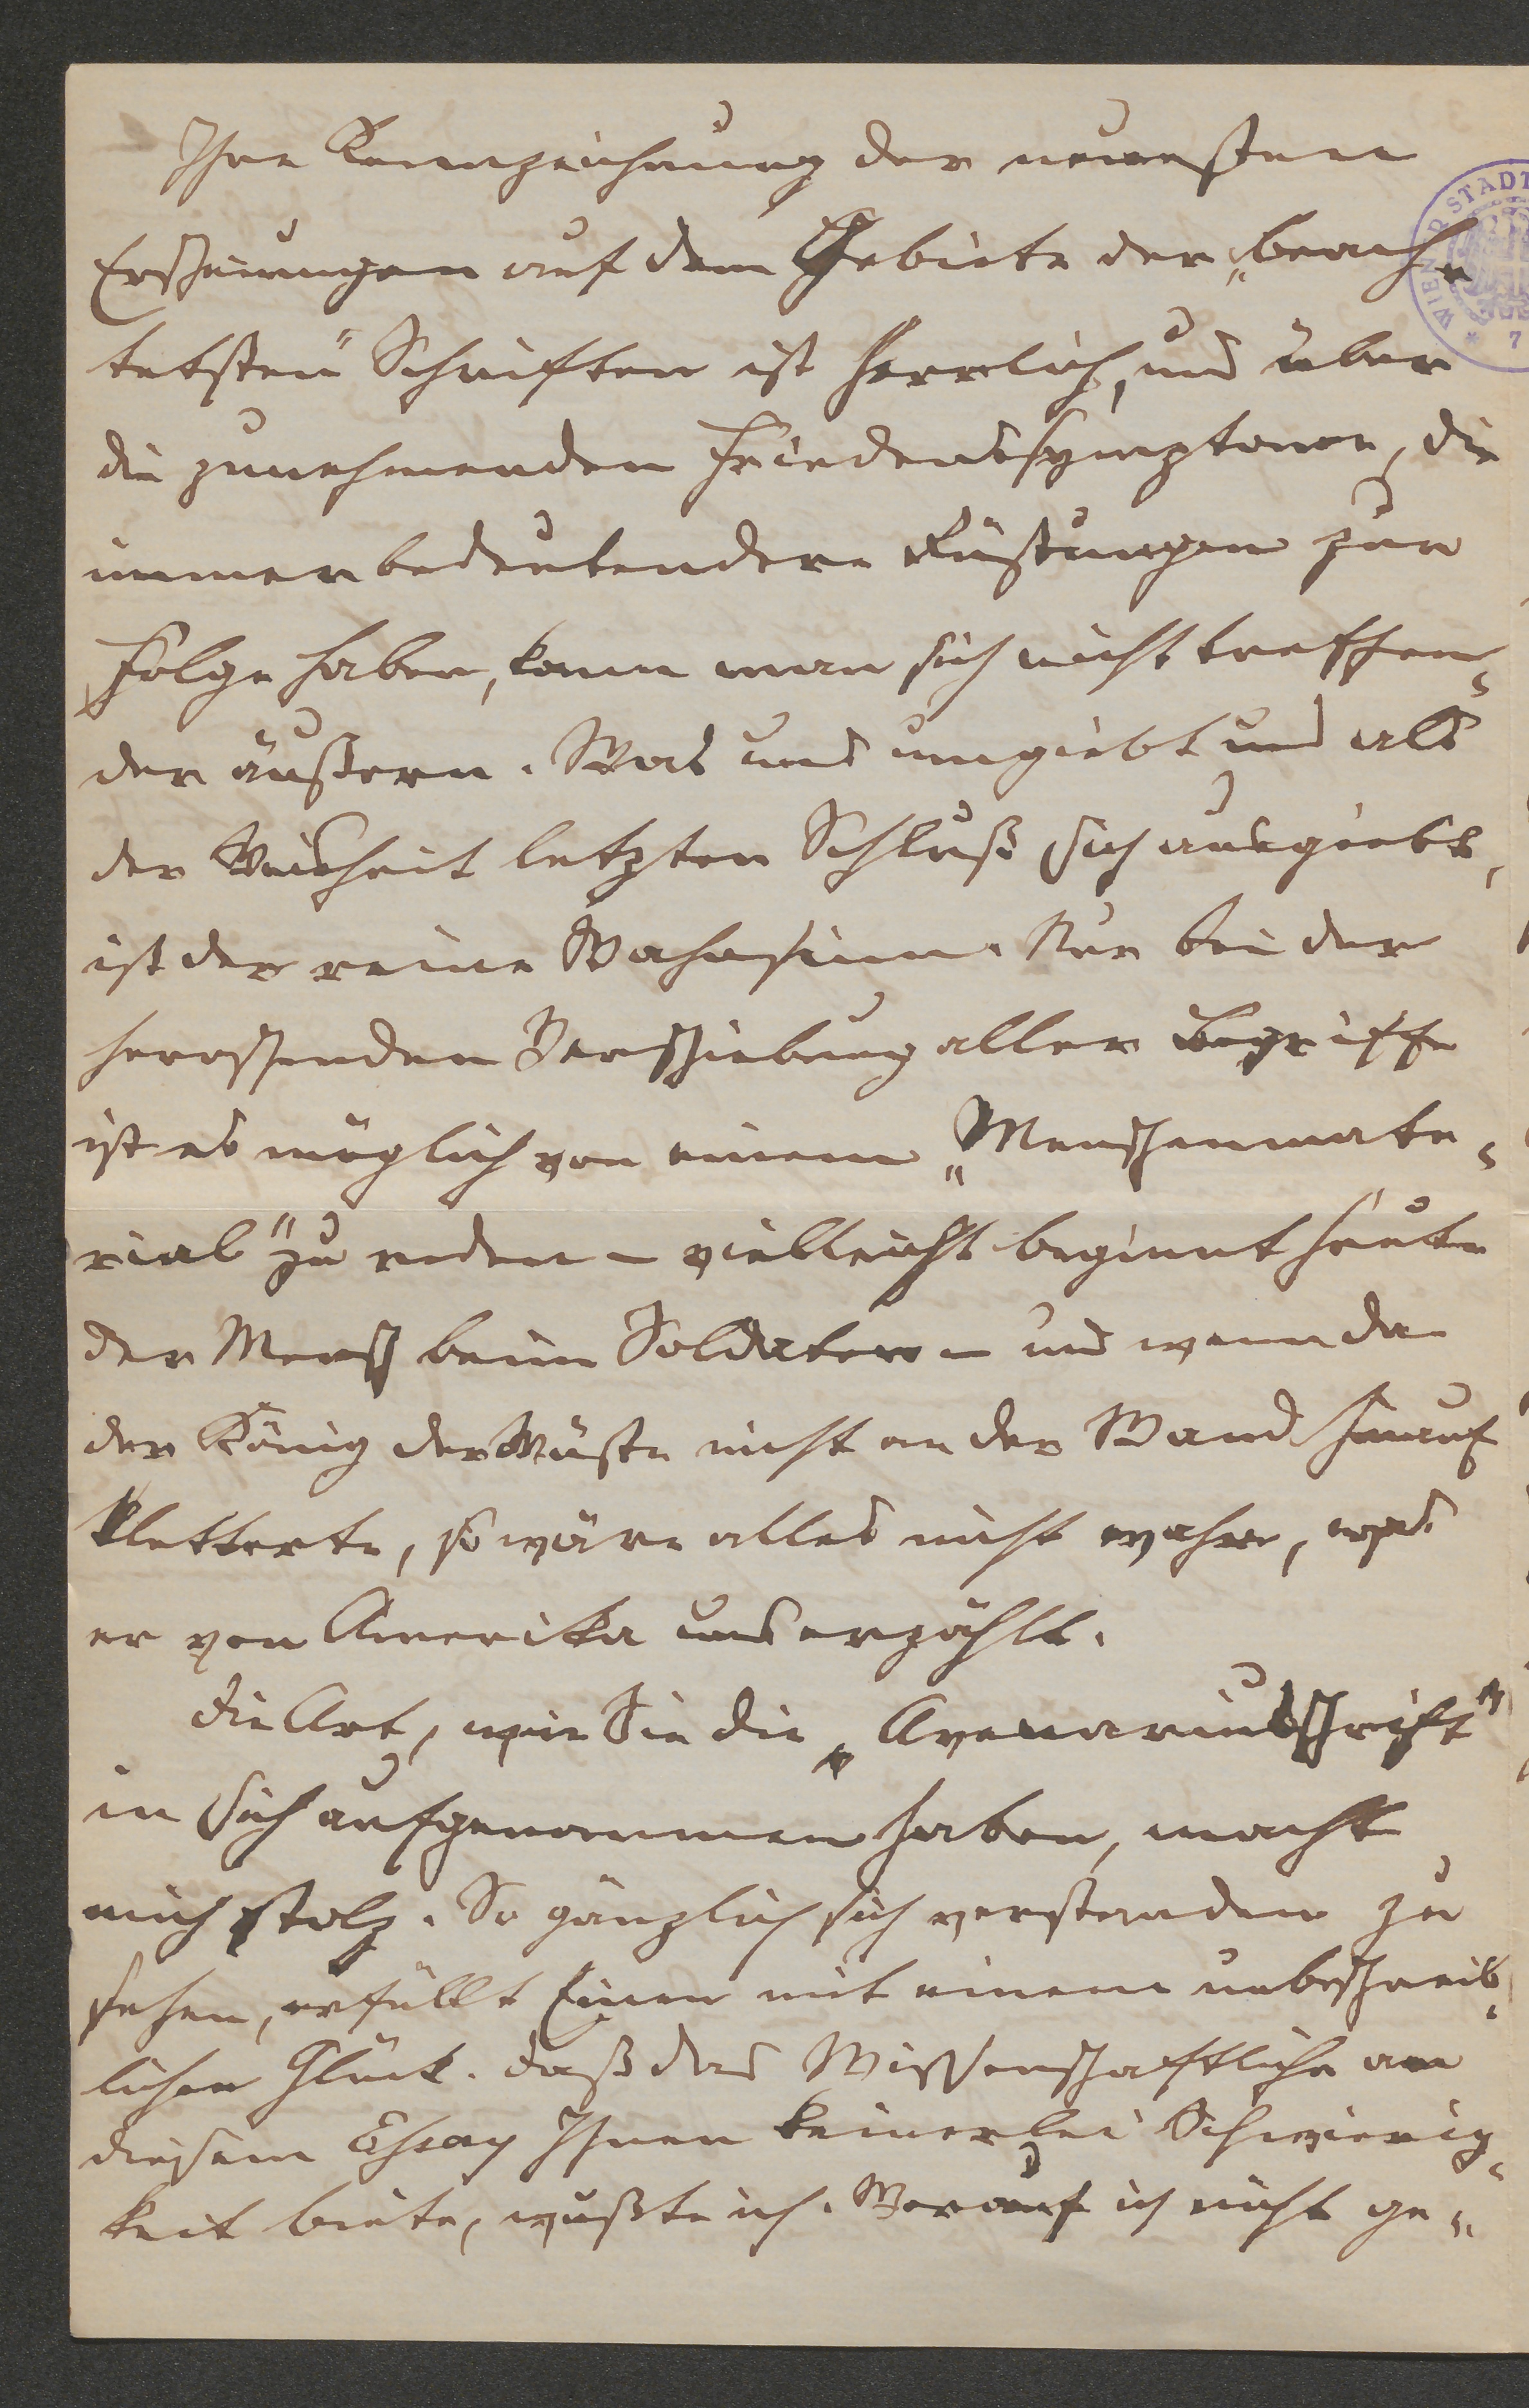 Ihre Kennzeichnung der neuesten
Erscheinungen auf dem Gebiete der „beach-
tetsten" Schriften ist herrlich, und über
die zunehmenden Friedenssymptome, die
immer bedeutendere Rüstungen zur
Folge haben, kann man sich nicht treffen-
der äußern. Was uns umgiebt und als
der Weisheit letzten Schluß sich ausgiebt,
ist der reine Wahnsinn. Nur bei der
herrschenden Verschiebung aller Begriffe
ist es möglich von einem „Menschenmate-
rial" zu reden – vielleicht beginnt heute
der Mensch beim Soldaten – und wenn da
der König der Wüste nicht an der Wand hinauf
kletterte, so wäre alles nicht wahr, was
er von Amerika uns erzählt.
Die Art, wie Sie die „Avenariusschrift"
in sich aufgenommen haben, macht
mich stolz. So gänzlich sich verstanden zu
sehen, erfüllt Einen mit einem unbeschreib-
lichen Glück. Daß das Wissenschaftliche an
diesem Essay Ihnen keinerlei Schwierig-
keit biete, wußte ich. Worauf ich nicht ge-
WIENER STADT
* 7